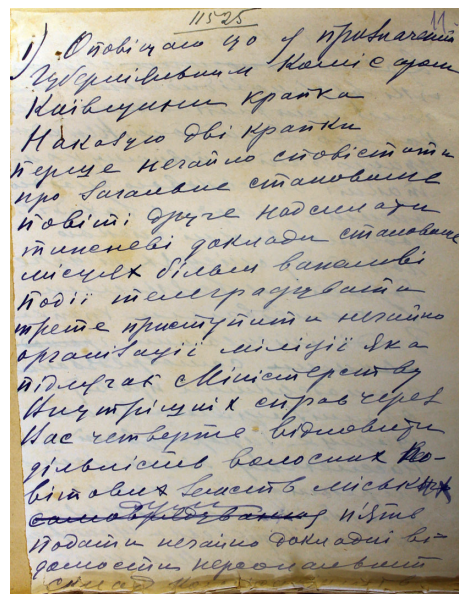 11525
11
1) Оповіщаю що я призначений
Губерніяльним Комісаром
Київщини крапка
Наказую дві крапки
перше негайно сповістити
про загальне становище
повіті друге надсилати
тижневі доклади становище
місцях більш важливі
події телеграфувати
трете приступити негайно
організації міліції яка
підлягає Міністерству
Внутрішніх справ через
Нас четверте відновити
діяльність волосних По-
вітових Земств міських
самоврядування пьяте
подати негайно докладні ві-
домости персональний
склад